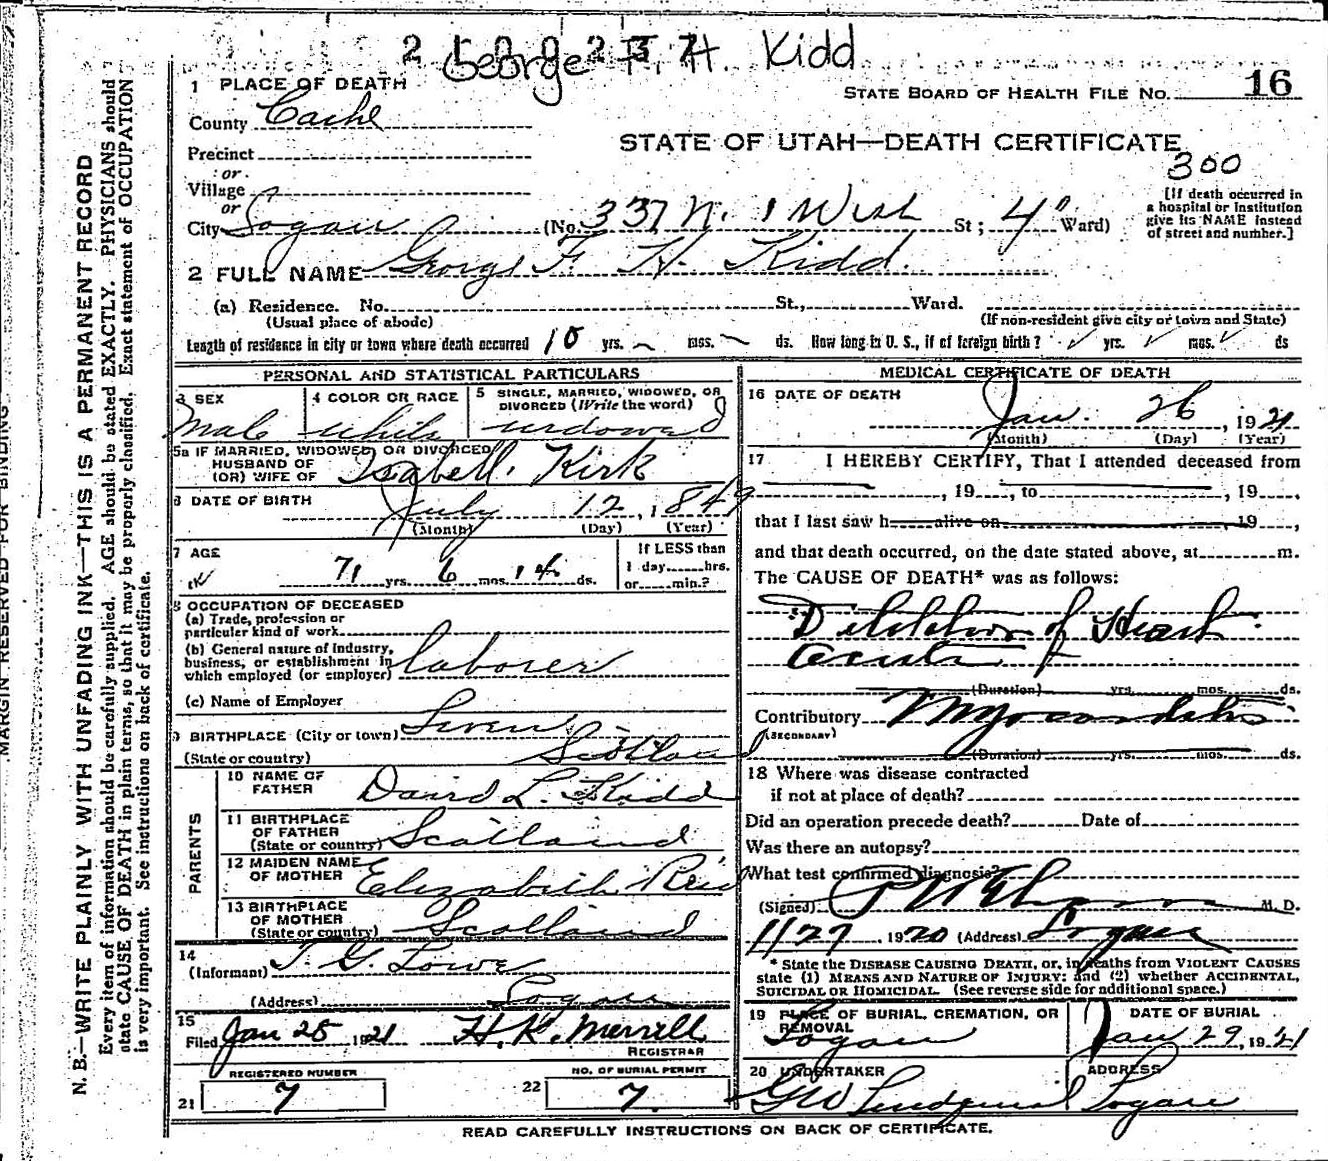 George F. H. Kidd
1 PLACE OF DEATH
STATE BOARD OF HEALTH FILE NO. 16
County Cache
STATE OF UTAH—DEATH CERTIFICATE
Precinct
300
or
Village
or
City Logan (No. 337 N. 1 West St; 4" Ward)
[If death occurred in
a hospital or institution
give its NAME instead
of street and number.]
2 FULL NAME George F. H. Kidd.
(a) Residence. No. St., Ward.
(Usual place of abode) (If non-resident give city or town and State)
Length of residence in city or town where death occurred 10 yrs. mos. ds. How long in U. S., if of foreign birth? yrs. mos. ds
PERSONAL AND STATISTICAL PARTICULARS
3 SEX
Male
4 COLOR OR RACE
white
5 SINGLE, MARRIED, WIDOWED, OR
DIVORCED (Write the word)
widowed
5a IF MARRIED, WIDOWED OR DIVORCED
HUSBAND OF
(OR) WIFE OF Isabell Kirk
6 DATE OF BIRTH
July 12, 1849
(Month) (Day) (Year)
7 AGE
71 yrs. 6 mos. 14 ds.
If LESS than
1 day hrs.
or min.?
8 OCCUPATION OF DECEASED
(a) Trade, profession or
particular kind of work
(b) General nature of Industry,
business, or establishment in
which employed (or employer) laborer
(c) Name of Employer
9 BIRTHPLACE (City or town)
(State or country) Scotland
PARENTS
10 NAME OF
FATHER David L. Kidd
11 BIRTHPLACE
OF FATHER
(State or country) Scotland
12 MAIDEN NAME
OF MOTHER Elizabeth Reid
13 BIRTHPLACE
OF MOTHER
(State or country) Scotland
14
(Informant) T. G. Lowe
(Address) Logan
15
Filed Jan 28 1921 H. K. Merrill
REGISTRAR
REGISTERED NUMBER
21 7
NO. OF BURIAL PERMIT
22 7.
MEDICAL CERTIFICATE OF DEATH
16 DATE OF DEATH
Jan. 26, 1921
(Month) (Day) (Year)
17 I HEREBY CERTIFY, That I attended deceased from
, 19 , to , 19 ,
that I last saw h alive on 19 ,
and that death occurred, on the date stated above, at m.
The CAUSE OF DEATH* was as follows:
Dilatation of Heart
Acute
(Duration) yrs. mos. ds.
Contributory Myocarditis
(SECONDARY)
(Duration) yrs. mos. ds.
18 Where was disease contracted
if not at place of death?
Did an operation precede death? Date of
Was there an autopsy?
What test confirmed diagnosis?
(Signed) M. D.
1/27 1920 (Address) Logan
* State the DISEASE CAUSING DEATH, or, in deaths from VIOLENT CAUSES
state (1) MEANS AND NATURE OF INJURY; and (2) whether ACCIDENTAL,
SUICIDAL OR HOMICIDAL. (See reverse side for additional space.)
19 PLACE OF BURIAL, CREMATION, OR
REMOVAL
Logan
DATE OF BURIAL
Jan 29, 1921
20 UNDERTAKER
GW Lindquist
ADDRESS
Logan
READ CAREFULLY INSTRUCTIONS ON BACK OF CERTIFICATE.
MARGIN RESERVED FOR BINDING
N. B.—WRITE PLAINLY WITH UNFADING INK—THIS IS A PERMANENT RECORD
Every item of information should be carefully supplied. AGE should be stated EXACTLY. PHYSICIANS should
state CAUSE OF DEATH in plain terms, so that it may be properly classified. Exact statement of OCCUPATION
is very important. See instructions on back of certificate.